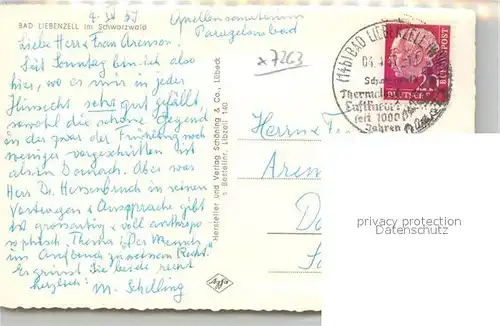 BAD LIEBENZELL im Schwarzwald
4. IV 57
Quellensanatorium
Paracelsusbad
x7263
Liebe Herr u. Frau Arenson.
Seit Sonntag bin ich also
hier, wo es mir in jeder
Hinsicht sehr gut gefällt,
sowohl die schöne Gegend
in der zwar der Frühling noch
weniger vorgeschritten ist
als in Dornach. Aber was
Herr Dr. in seinen
Vorträgen & Aussprache gibt
ist grossartig & voll anthropo-
sophisch. Thema: "Der Mensch
im Aufbruch zu neuem
Es grüsst Sie beide recht
herzlich: M. Schilling
Hersteller und Verlag Schöning & Co., Lübeck
Bestellnr. Libzell 140
(14b) BAD LIEBENZELL
04.4.
Thermal
Luftkurort
seit 1000
Jahren
BUNDESPOST
DEUTSCHE
Herrn u. F
Aren
D
privacy protection
Datenschutz